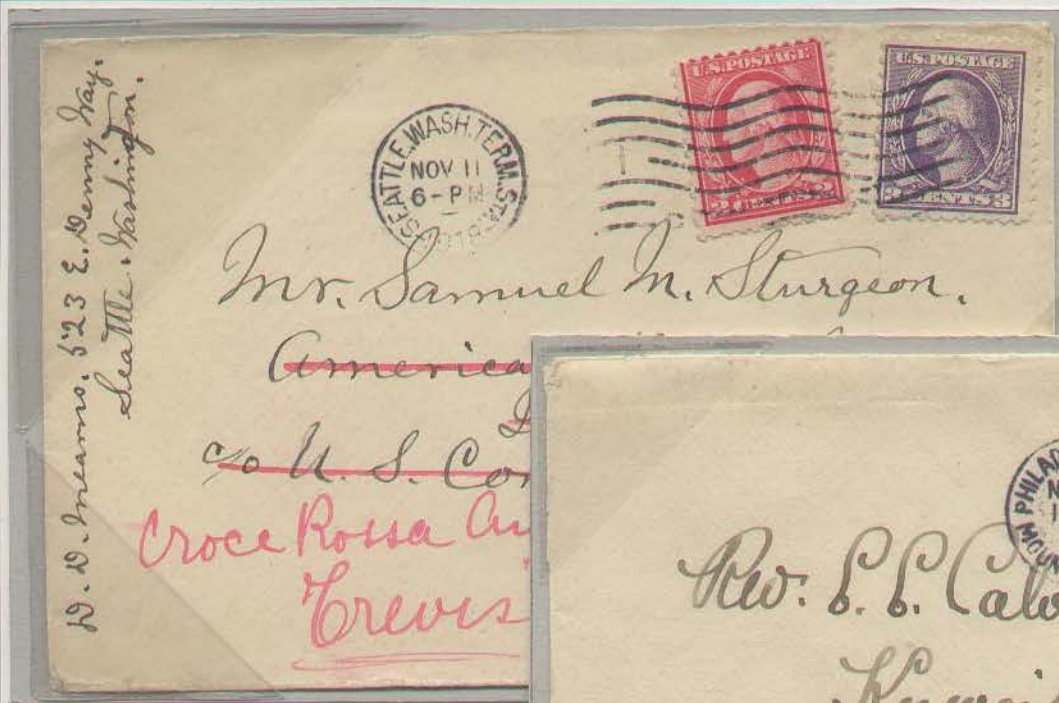 D. D. Mearns. 523 E. Denny Way.
Seattle. Washington.
SEATTLE, WASH. TERM. STA.
NOV 11
6-PM
U.S. POSTAGE
2 CENTS 2
U.S. POSTAGE
3 CENTS 3
Mr. Samuel M. Sturgeon.
America
c/o U. S. Co
Croce Rossa
Trevis
PHILAD
Rev. E. E. Calv